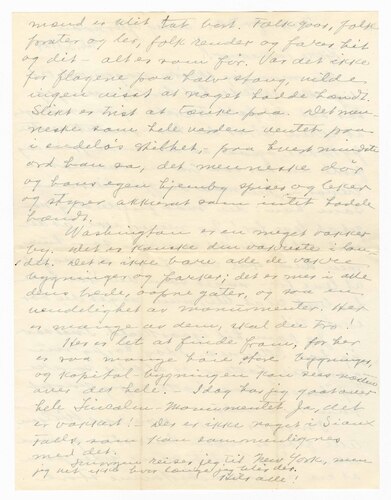 mand er blit tat bort. Folk gaar, folk
prater og ler, folk render og farer hit
og dit – alt er som før. Var det ikke
for flagene paa halv stang, vilde
ingen visst at noget hadde hændt.
Slikt er trist at tænke paa. Det men-
neske som hele verden ventet paa
i endeløs stillhet, – paa hvert mindste
ord han sa, det menneske dör
og hans egen hjemby spiser og leker
og styrer akkurat som intet hadde
hændt.
Washington er en meget vakker
by. Det er kanske den vakreste i lan-
det. Det er ikke bare alle de vakre
bygninger og parker; det er mer i alle
dens brede, aapne gater, og saa en
uendelighet av monumenter. Her
er mange av dem, skal du tro!
Her er let at finde fram, for her
er saa mange höie store bygninger,
og kapitol-bygningen kan sees næsten
over det hele. I dag har jeg
hele Lincoln-Monumentet. Ja, det
er vakkert! – Der er ikke noget i Sioux
Falls, som kan sammenlignes
med det.
reiser jeg til New York, men
jeg vet ikke hvor længe jeg blir der.
Hils alle!